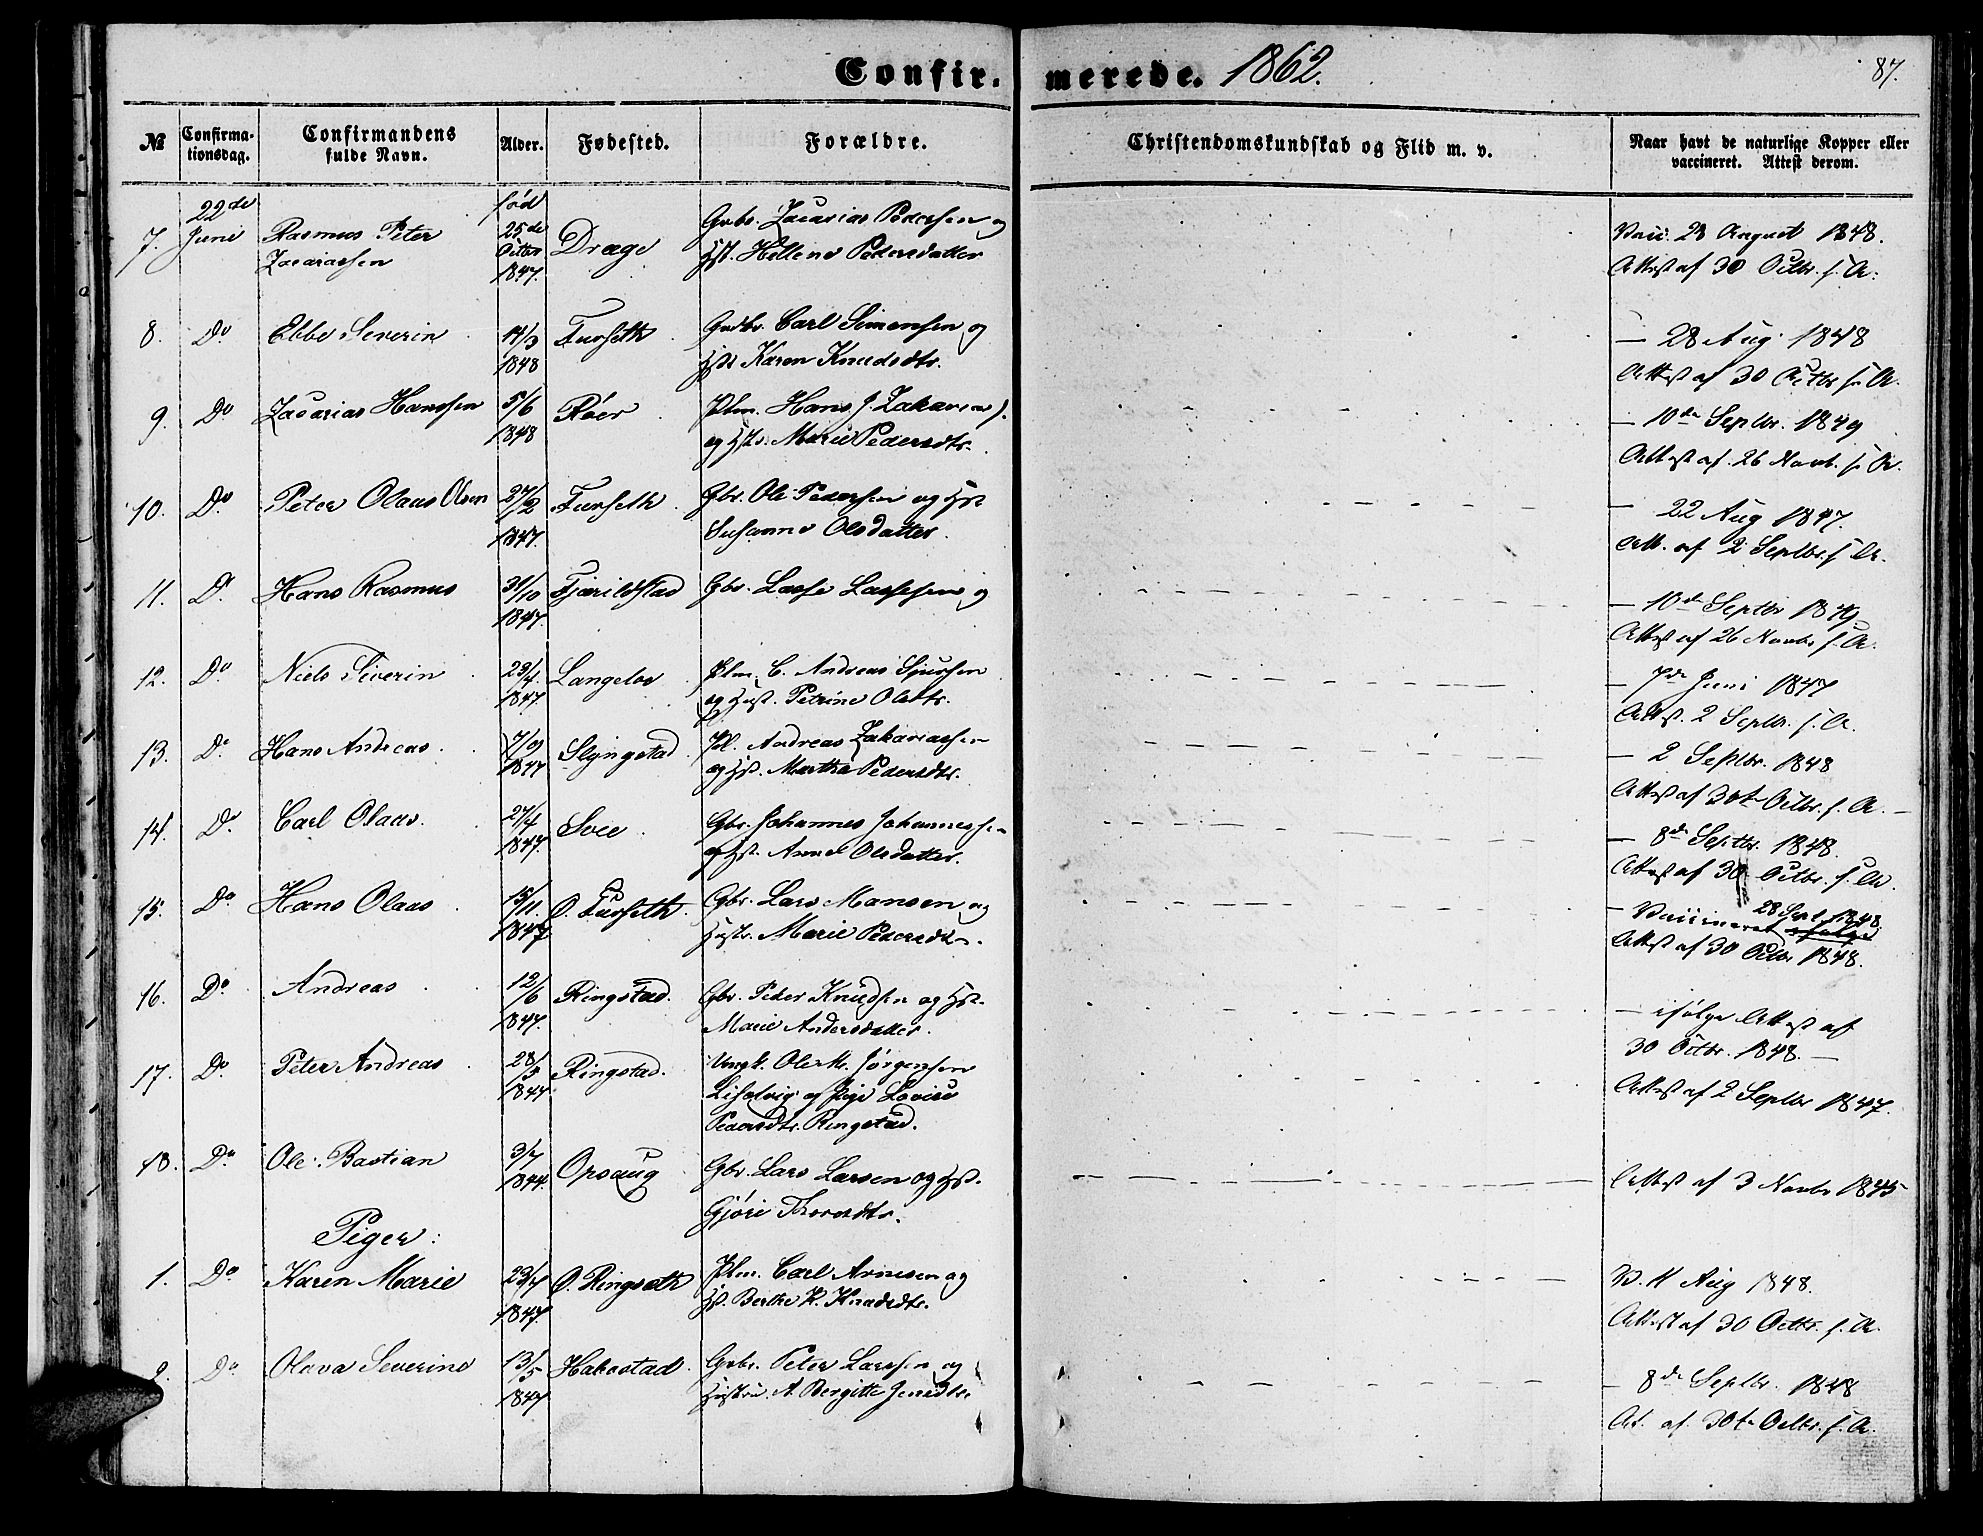 Confir. merede. 1862. 87.
№ Confirma-tionsdag. Confirmandens fulde Navn. Alder. Fødested. Forældre. Christendomskundskab og Flid m. v. Naar havt de naturlige Kopper eller vaccineret. Attest derom.
22de født
7. Juni Rasmus Peter 25de Drage Gbr. Zacarias Pedersen og Vacc. 28 August 1848.
Zacariassen Octbr 1847. Hst. Hellene Pedersdatter Attest af 30 Octbr. s. A.
8. Do Ebbe Severin 14/3 Furseth Grdbr. Carl Simensen og — 28 Aug 1848
1848 Hstr Karen Knudsdtr. Attest af 30 Octbr s. A.
9. Do Zacarias Hanssen 5/6 Røer Plm. Hans J. Zakarias s. — 10de Septbr. 1849
1848 og Hstr. Marie Pedersdtr. Attest af 26 Novb. s. A.
10. Do Peter Olaus Olsen 27/2 Furseth Gbr. Ole Pedersen og Hst — 22 Aug 1847.
1847. Susanne Olsdatter. Att. af 2 Septbr. s. A.
11. Do Hans Rasmus 31/10 Fjærildstad Gbr. Lasse Lassesen og — 10de Septbr 1849
1847. Attest af 26 Novbr s. A.
12. Do Niels Severin 23/4 Langeloe Plm. C. Andreas Sjursen — 7de Juni 1847
1847. og Hust. Petrine Olsdtr. Attest. 2 Septbr. s. A.
13. Do Hans Andreas. 7/9 Slyngstad Pl. Andreas Zakariassen — 2 Septbr. 1848
1847 og Hst. Martha Pedersdtr. Attest af 30te Octbr. s. A. —
14. Do Carl Olaus. 27/4 Svee. Gbr. Johannes Johannessen — 8de Septbr. 1848.
1847. og Hst. Anne Olsdatter. Attest af 30 Octbr. s. A.
15. Do Hans Olaus 15/11. Ø. Furseth. Gbr. Lars Mansen og — Vaccineret 28 Sept 1848.
1847 Hustr. Marie Pedersdtr. Attest af 30 Octbr 1848.
16. Do Andreas. 12/6 Ringstad. Gbr. Peder Knudsen og Hst. — ifølge Attest af
1847. Marie Andersdatter. 30 Octbr. 1848. —
17. Do Peter Andreas 28/3 Ringstad. Ungk. Ole M. Jørgensen Attest af 2 Septbr 1847.
1847 og Pige Lovise
Pedersdtr. Ringstad.
18. Do Ole Bastian 3/7 Opsaug Gbr. Lars Larsen og Hst. Attest af 3 Novbr 1845
1844. Gjøri Thoresdtr.
Piger:
1. Do Karen Marie 23/7 Ø. Ringseth Plm. Carl Arnesen og V. 11 Aug 1848.
1847. Hst. Berthe K. Knudsdtr. Attest af 30 Octbr. s. A.
2. Do Olava Severine 13/5 Hakestad. Gbr. Peter Larssen og — 8de Septbr. 1848
1847 Hustru. A. Bergitte Jensdtr At. af. 30te Octbr. s. A.